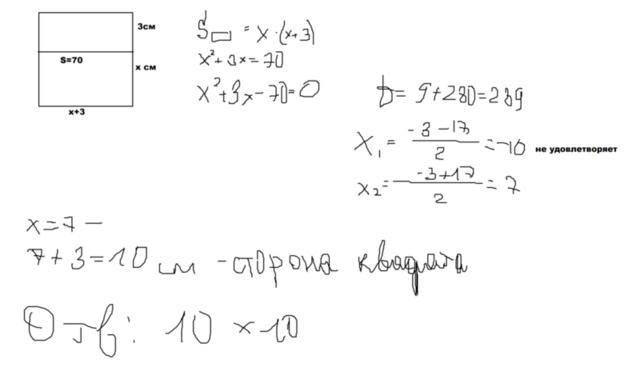 3см
S=70
x см
x+3
S▭ = x·(x+3)
x²+3x=70
x²+3x-70=0
D= 9+280=289
X₁= (-3-17)/2 =-10 не удовлетворяет
x₂= (-3+17)/2 = 7
x=7 -
7+3=10 см - сторона квадрата
Отв: 10 x 10